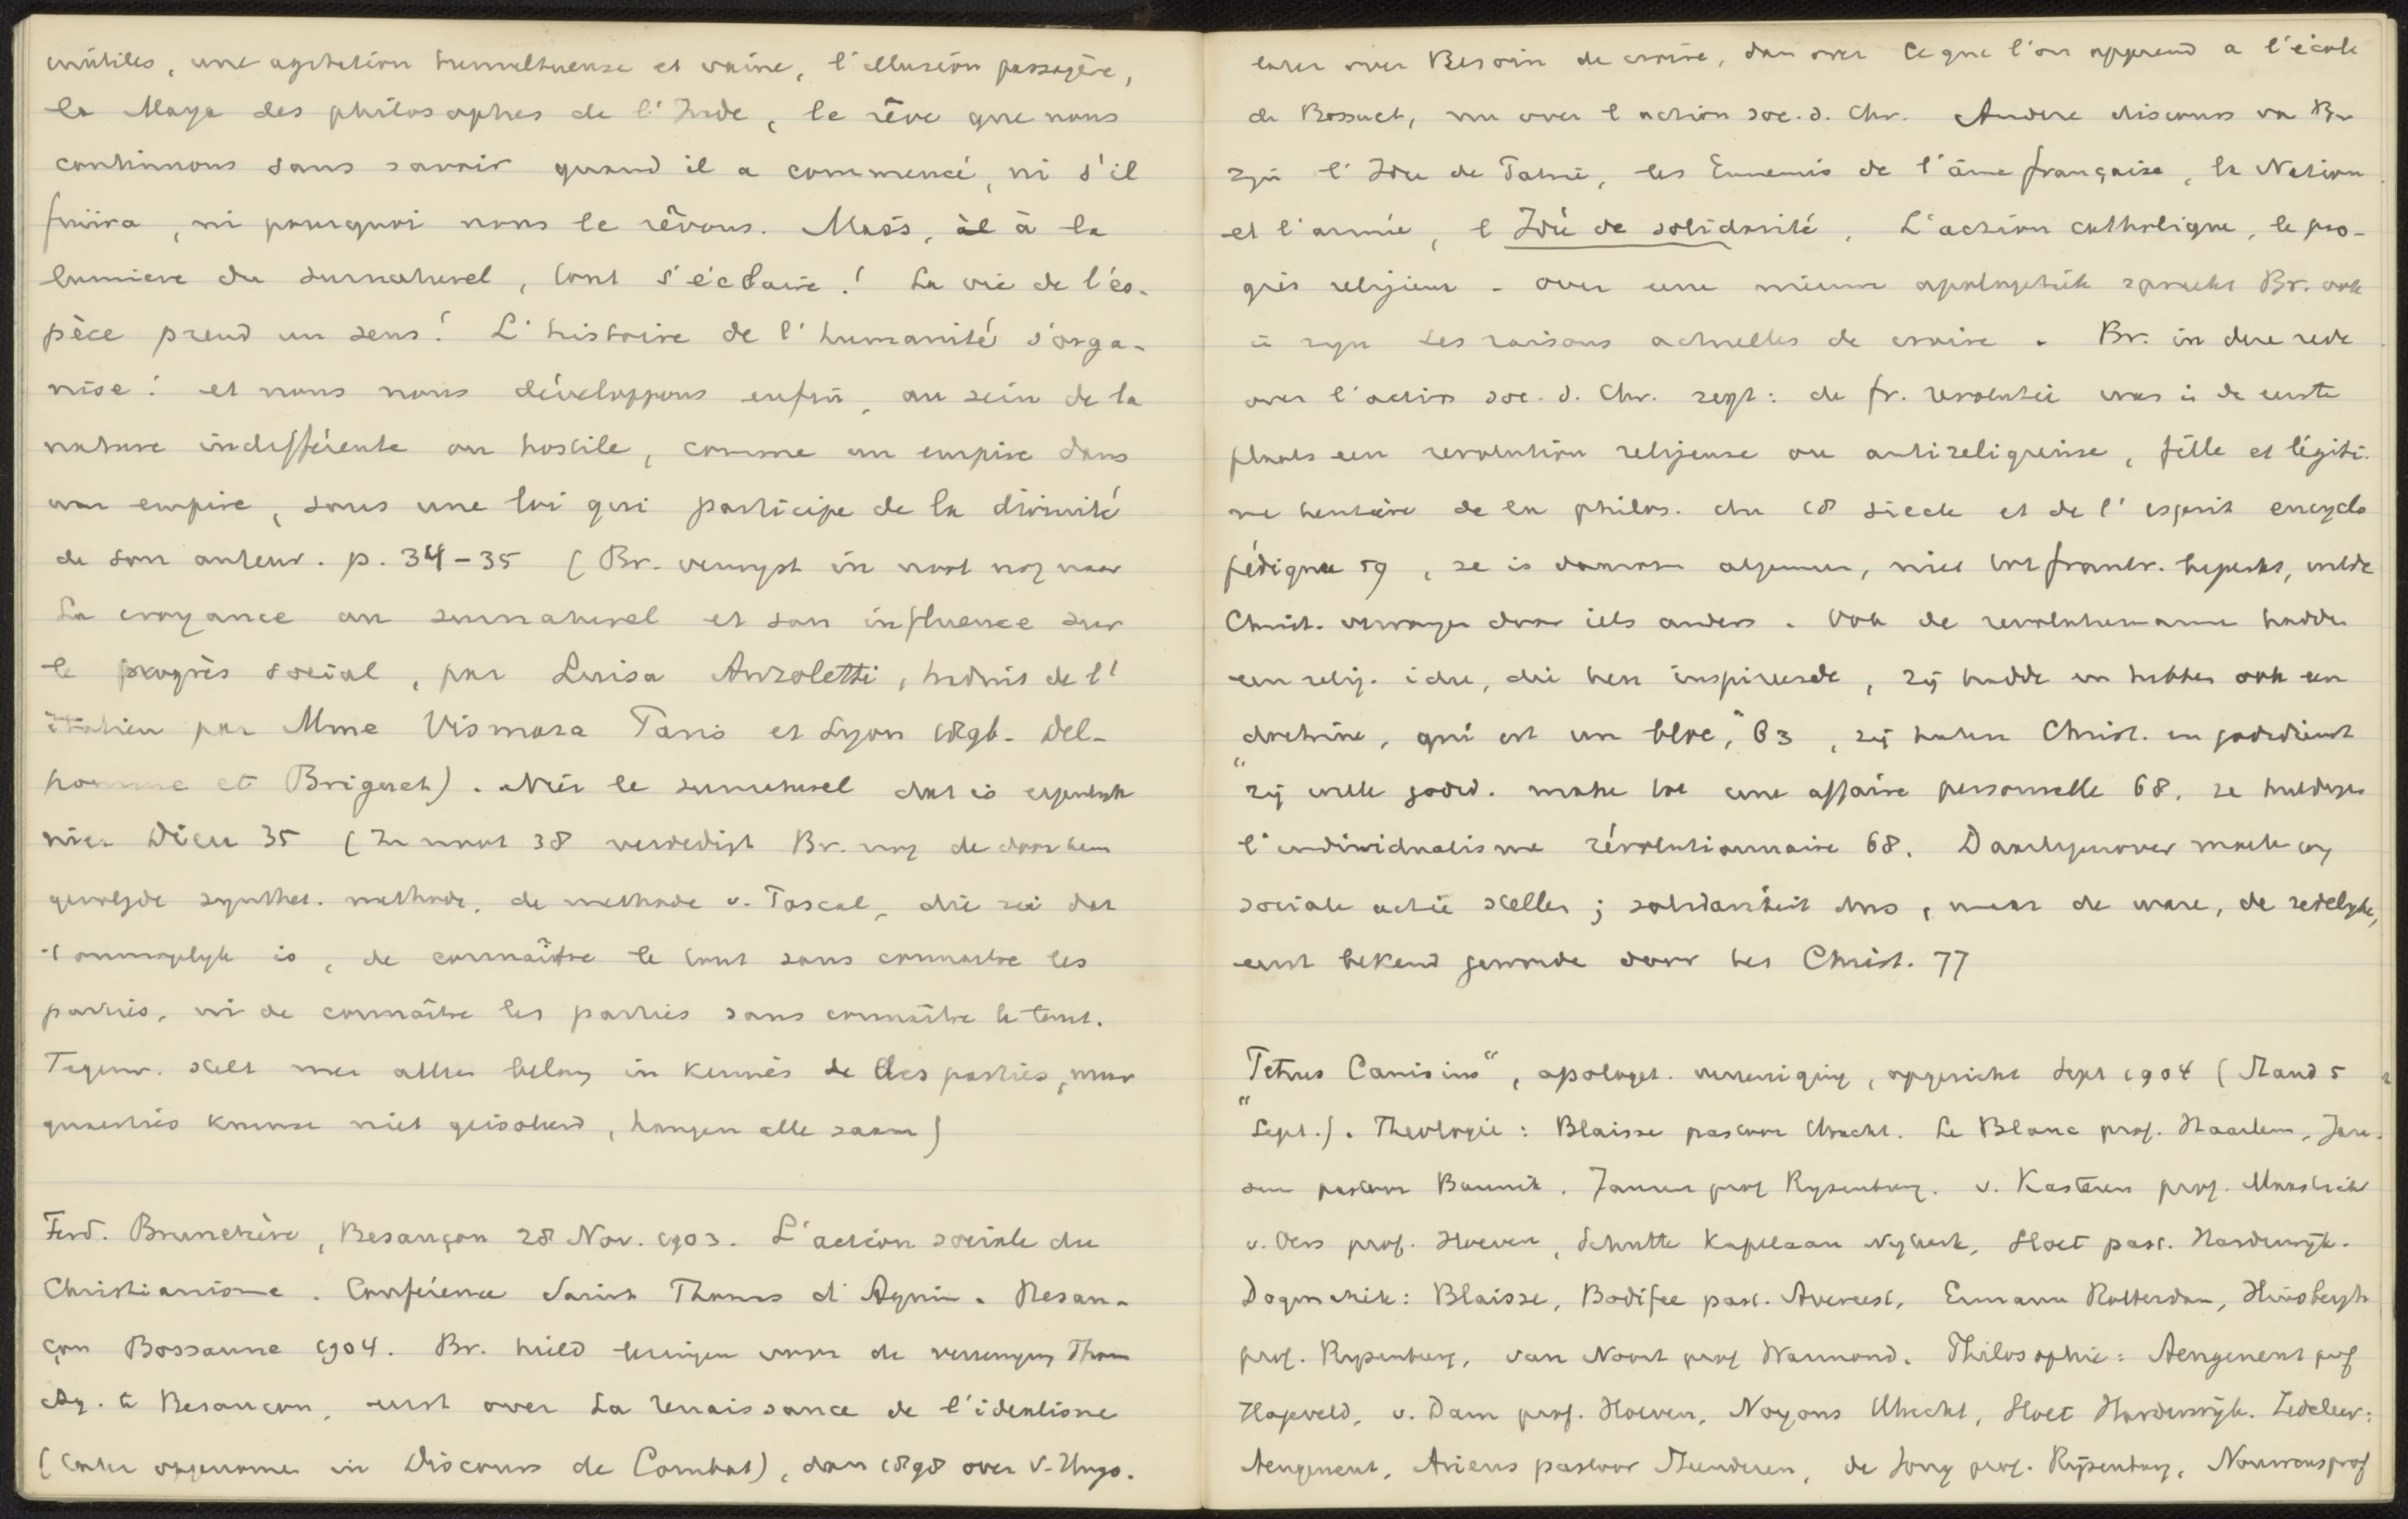 inutiles, une agitation tumultueuse et vaine, l'illusion passagère,
la Maya des philosophes de l'Inde, le rêve que nous
continuons sans savoir quand il a commencé, ni s'il
finira, ni pourquoi nous le rêvons. Mais, à la
lumiere du surnaturel, tout s'éclaire! La vie de l'es-
pèce prend un sens! L'histoire de l'humanité s'orga-
nise! et nous nous développons enfin, au sein de la
nature indifférente ou hostile, comme un empire dans
un empire, sous une loi qui participe de la divinité
de son auteur. p. 34-35 (Br. verwyst in noot nog naar
La croyance au surnaturel et son influence sur
le progrès social, par Luisa Anzoletti, traduit de l'
italien par Mme Vismara Paris et Lyon 1896. Del-
homme et Briguet). Nier le surnaturel dat is eigenlyk
nier Dieu 35 (In noot 38 verdedigt Br. nog de door hem
gevolgde synthet. methode, de methode v. Pascal, die zei dat
't onmogelyk is, de connaître le tout sans connaitre les
parties, ni de connaître les parties sans connaître le tout.
Tegenw. stelt men alleen belang in kennis de des parties, maar
quaesties kunnen niet geisoleerd, hangen alle saam)
Ferd. Brunetière, Besançon 28 Nov. 1903. L'action sociale du
Christianisme. Conférence Saint Thomas d'Aquin. Besan-
çon Bossanne 1904. Br. hield lezingen voor de vereeniging Thom
Aq. te Besancon, eerst over La renaissance de l'idealisme
(later opgenomen in Discours de Combat), dan 1898 over V. Hugo.
later over Besoin de croire, dan over Ce que l'on apprend a l'école
de Bossuet, nu over l action soc. d. Chr. Andere discours va Br
zijn l'Idee de Patrie, les Ennemis de l'âme française, la Nation
et l'armée, l Idée de solidarité, L'action catholique, le pro-
grès religieux - over eene nieuwe apologetiek spreekt Br. ook
in zyn Les raisons actuelles de croire. Br. in deze rede
over l'action soc. d. Chr. zegt: de fr. revolutie was in de eerste
plaats een revolution religieuse ou antireligieuse, fille et légiti-
me heritière de la philos. du 18 siecle et de l'esprit encyclo
pédique 59, ze is daarom algemeen, niet tot frankr. beperkt, wilde
Christ. vervangen door iets anders. Ook de revolutiemannen hadden
een relig. idee, die hen inspireerde, zij hadde en hebben ook een
doctrine, "qui est un bloc," 63, zij haten Christ. en godsdienst
zij wille godsd. make tot une affaire personnelle 68, ze huldigen
l'individualisme révolutionnaire 68. Daartegenover moeten wy
sociale actie stellen; solidariteit dus, maar de ware, de redelyke,
eerst bekend geworde door het Christ. 77
"Petrus Canisius", apologet. vereeniging, opgericht Sept 1904 (Stand 5
Sept.). Theologie: Blaisse pastoor Utrecht. Le Blanc prof. Haarlem, Jan-
sen pastoor Bunnik, Jansen prof Rysenburg. v. Kasteren prof. Maastricht
v. Oers prof. Hoeven, Schutte Kapelaan Nykerk, Sloet past. Harderwijk.
Dogmatiek: Blaisse, Bodifee past. Avereest, Ermann Rotterdam, Huisbergh
prof. Rysenburg, van Noort prof Warmond. Philosophie: Aengenent prof
Hageveld, v. Dam prof. Hoeven, Noyons Utrecht, Sloet Harderwijk. Zedeleer:
Aengenent, Ariens pastoor, de Jong prof. Rijsenburg, prof